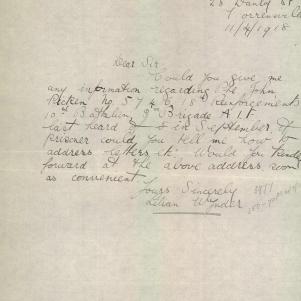 Danby St
Torrensville
11/4/1918
Dear Sir,
Could you give me
any information regarding Pte John
No 5746 18th Reinforcements
10th Battalion, Brigade A.I.F.
last heard of in September, if
prisoner could you tell me how to
address letters etc. Would you
forward at the above address soon
as convenient
Yours Sincerely
Lilian